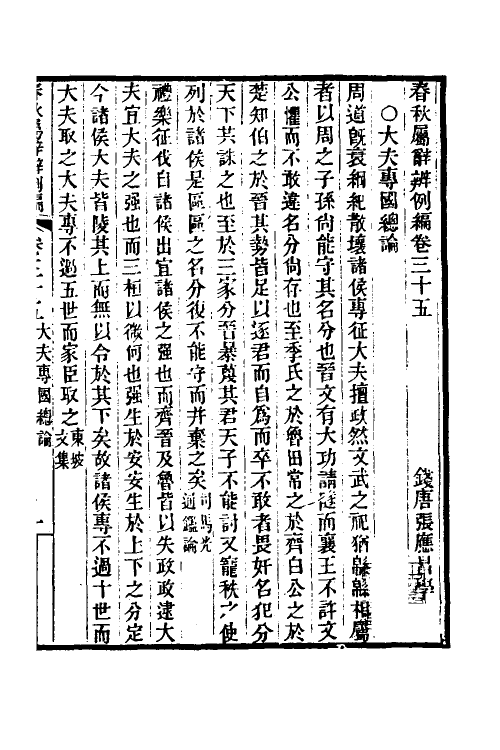 春秋屬辭辨例編卷三十五
錢唐張應昌學
○大夫專國總論
周道旣衰綱紀散壞諸侯專征大夫擅政然文武之祀猶緜緜相屬
者以周之子孫尙能守其名分也晉文有大功請隧而襄王不許文
公懼而不敢違名分尙存也至季氏之於魯田常之於齊白公之於
楚知伯之於晉其勢皆足以逐君而自爲而卒不敢者畏奸名犯分
天下共誅之也至於三家分晉暴蔑其君天子不能討又寵秩之使
列於諸侯是區區之名分復不能守而并棄之矣司馬光通鑑論
禮樂征伐自諸侯出宜諸侯之强也而齊晉及魯皆以失政政逮大
夫宜大夫之强也而三桓以微何也强生於安安生於上下之分定
今諸侯大夫皆陵其上而無以令於其下矣故諸侯專不過十世而
大夫取之大夫專不過五世而家臣取之東坡文集
大夫專國總論
一